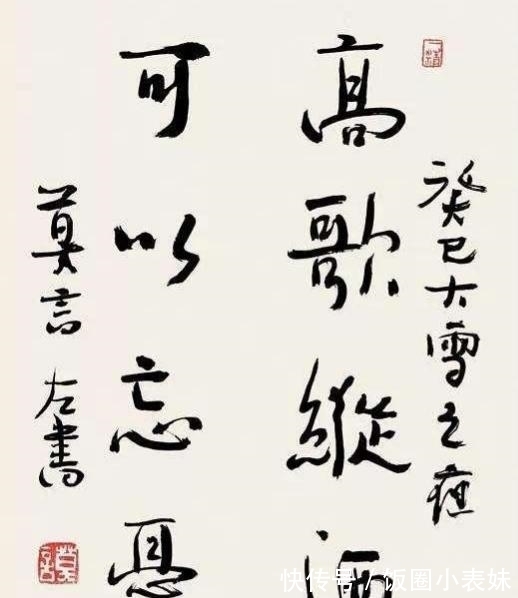 癸巳大雪之
高歌縱酒
可以忘憂
莫言左書
莫言
快传号/饭圈小表妹